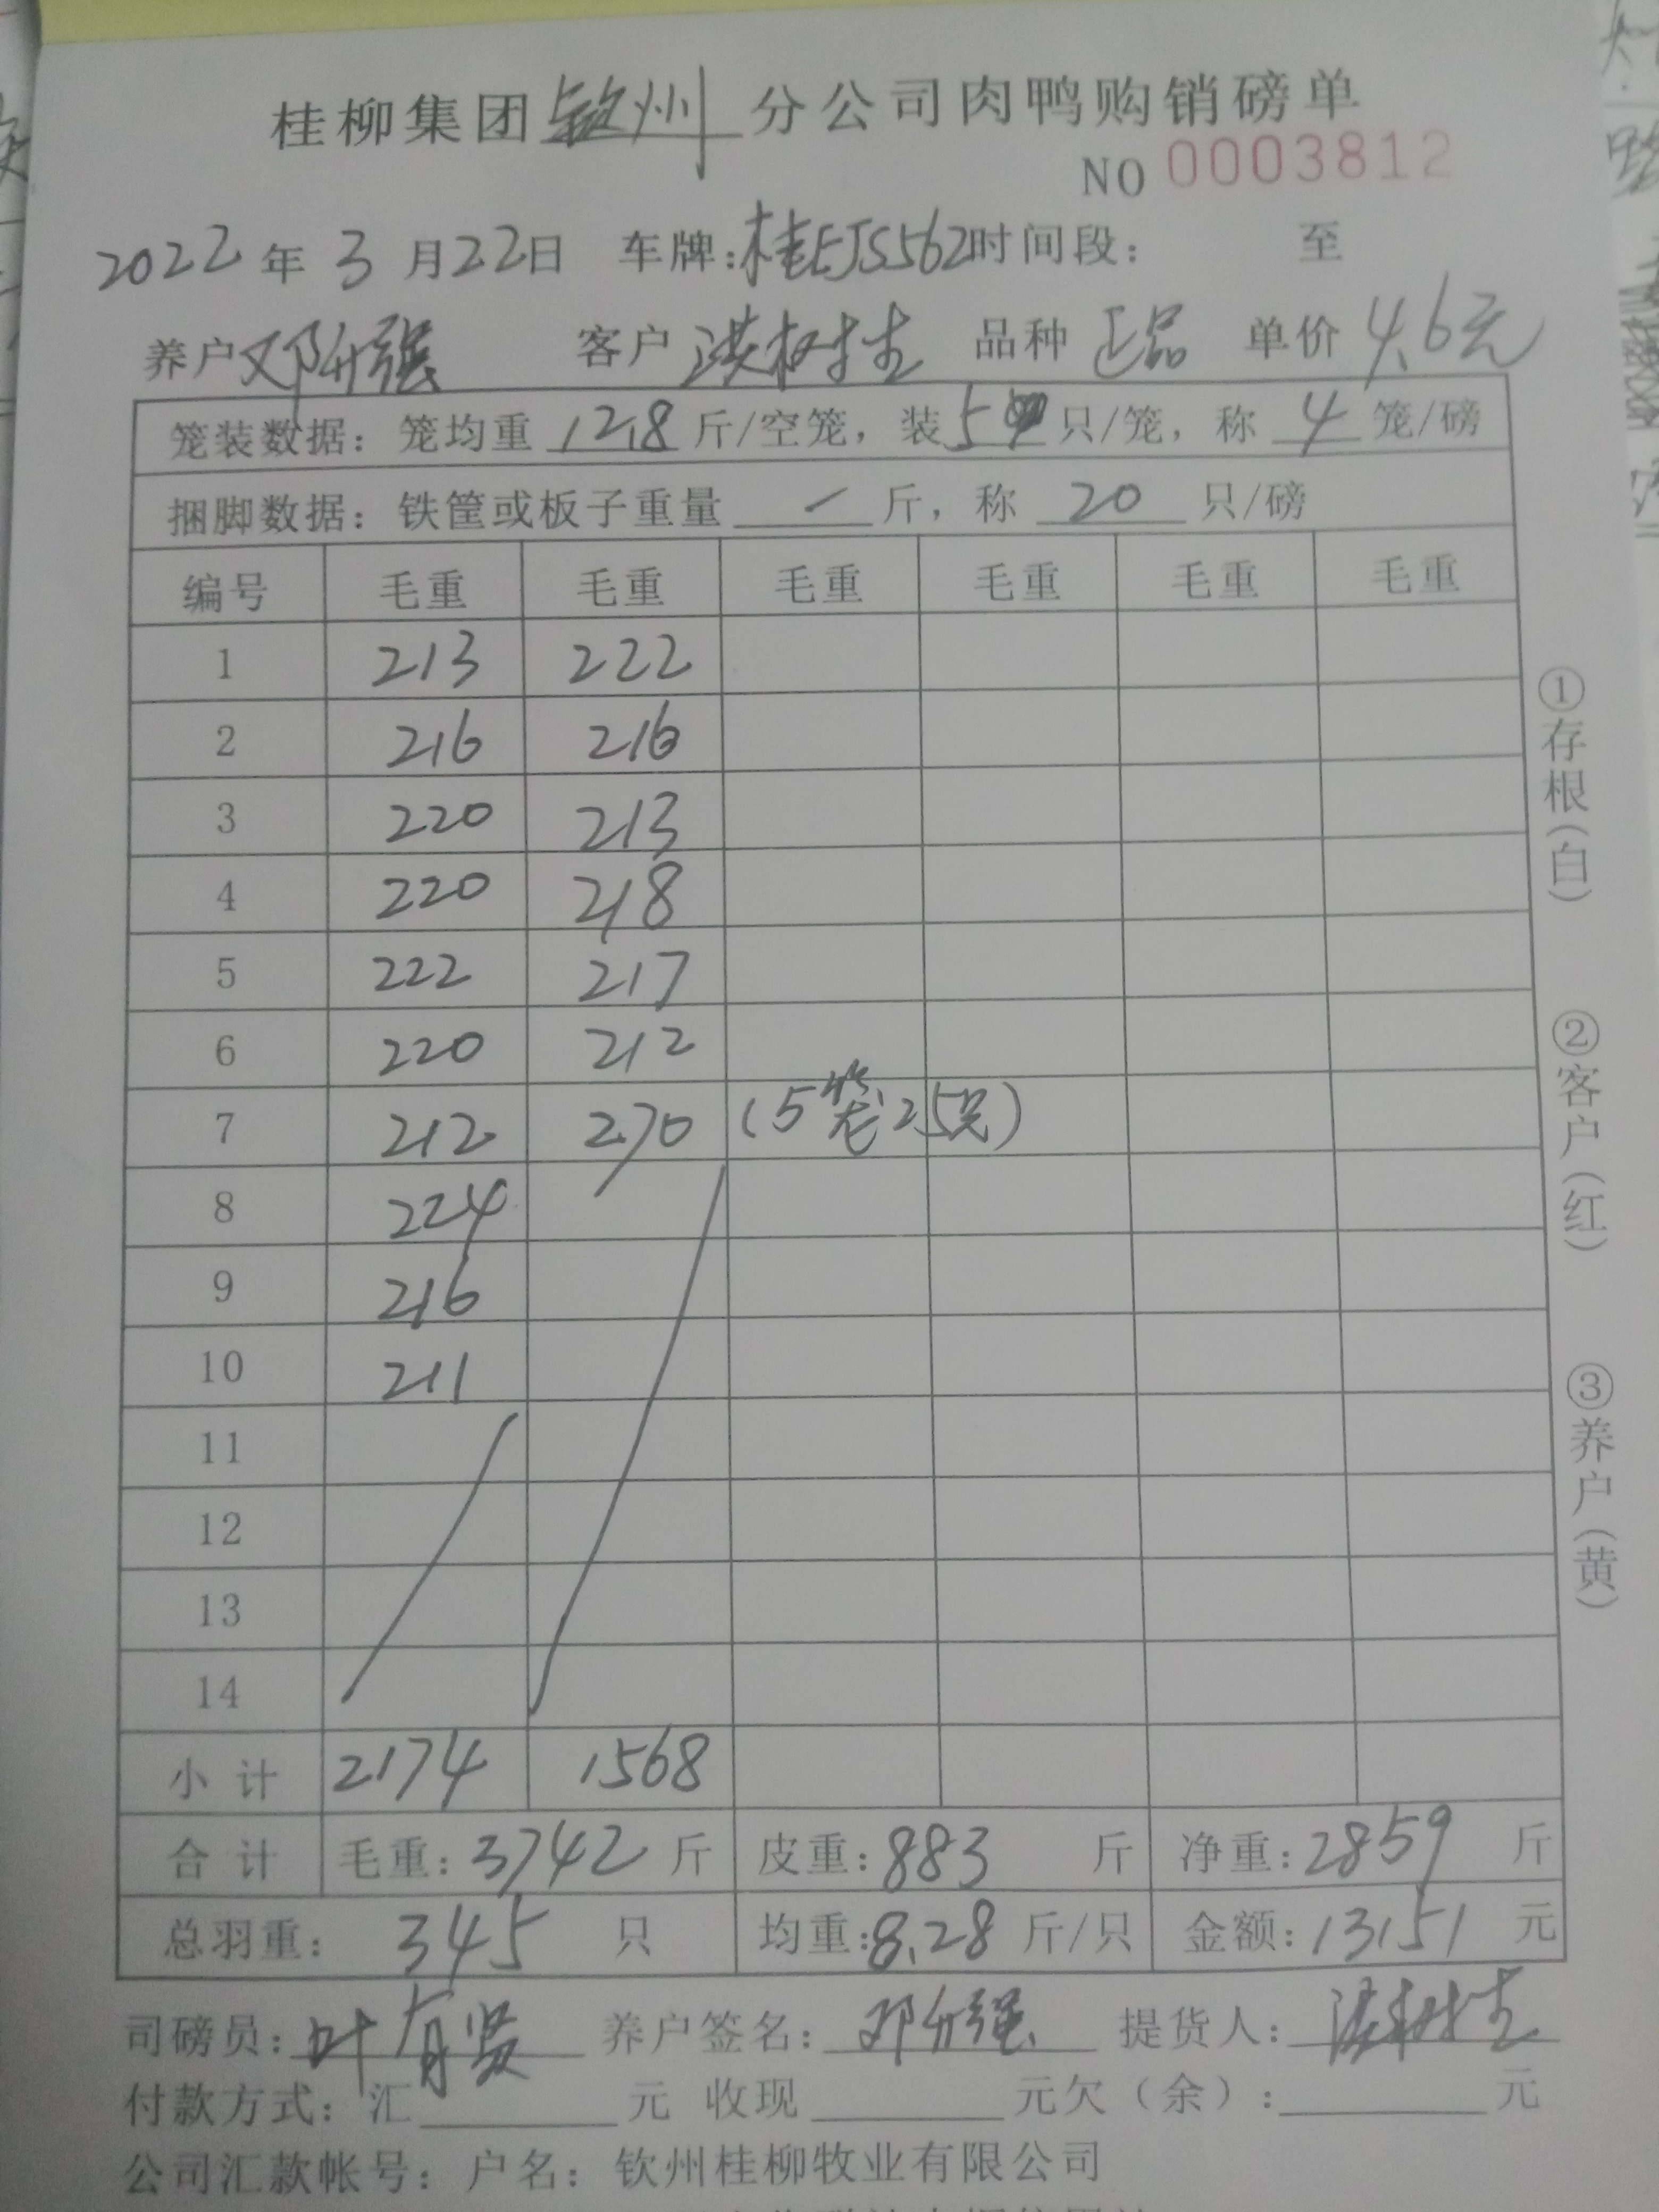 桂柳集团钦州分公司肉鸭购销磅单
NO 0003812
2022年3月22日 车牌:桂EJS562时间段: 至
养户邓升强 客户 洪树生 品种 正品 单价 4.6元
笼装数据: 笼均重 12.8 斤/空笼, 装5只/笼, 称 4 笼/磅
捆脚数据: 铁筐或板子重量 / 斤, 称 20 只/磅
编号 毛重 毛重 毛重 毛重 毛重 毛重
1 213 222
2 216 216
3 220 213
4 220 218
5 222 217
6 220 212
7 212 270 (5笼25只)
8 224
9 216
10 211
11
12
13
14
小计 2174 1568
合计 毛重: 3742 斤 皮重: 883 斤 净重: 2859 斤
总羽重: 345 只 均重: 8.28 斤/只 金额: 13151 元
司磅员: 叶有贤 养户签名: 邓升强 提货人: 洪树生
付款方式: 汇 元 收现 元欠(余): 元
公司汇款帐号: 户名: 钦州桂柳牧业有限公司
①存根(白)
②客户(红)
③养户(黄)